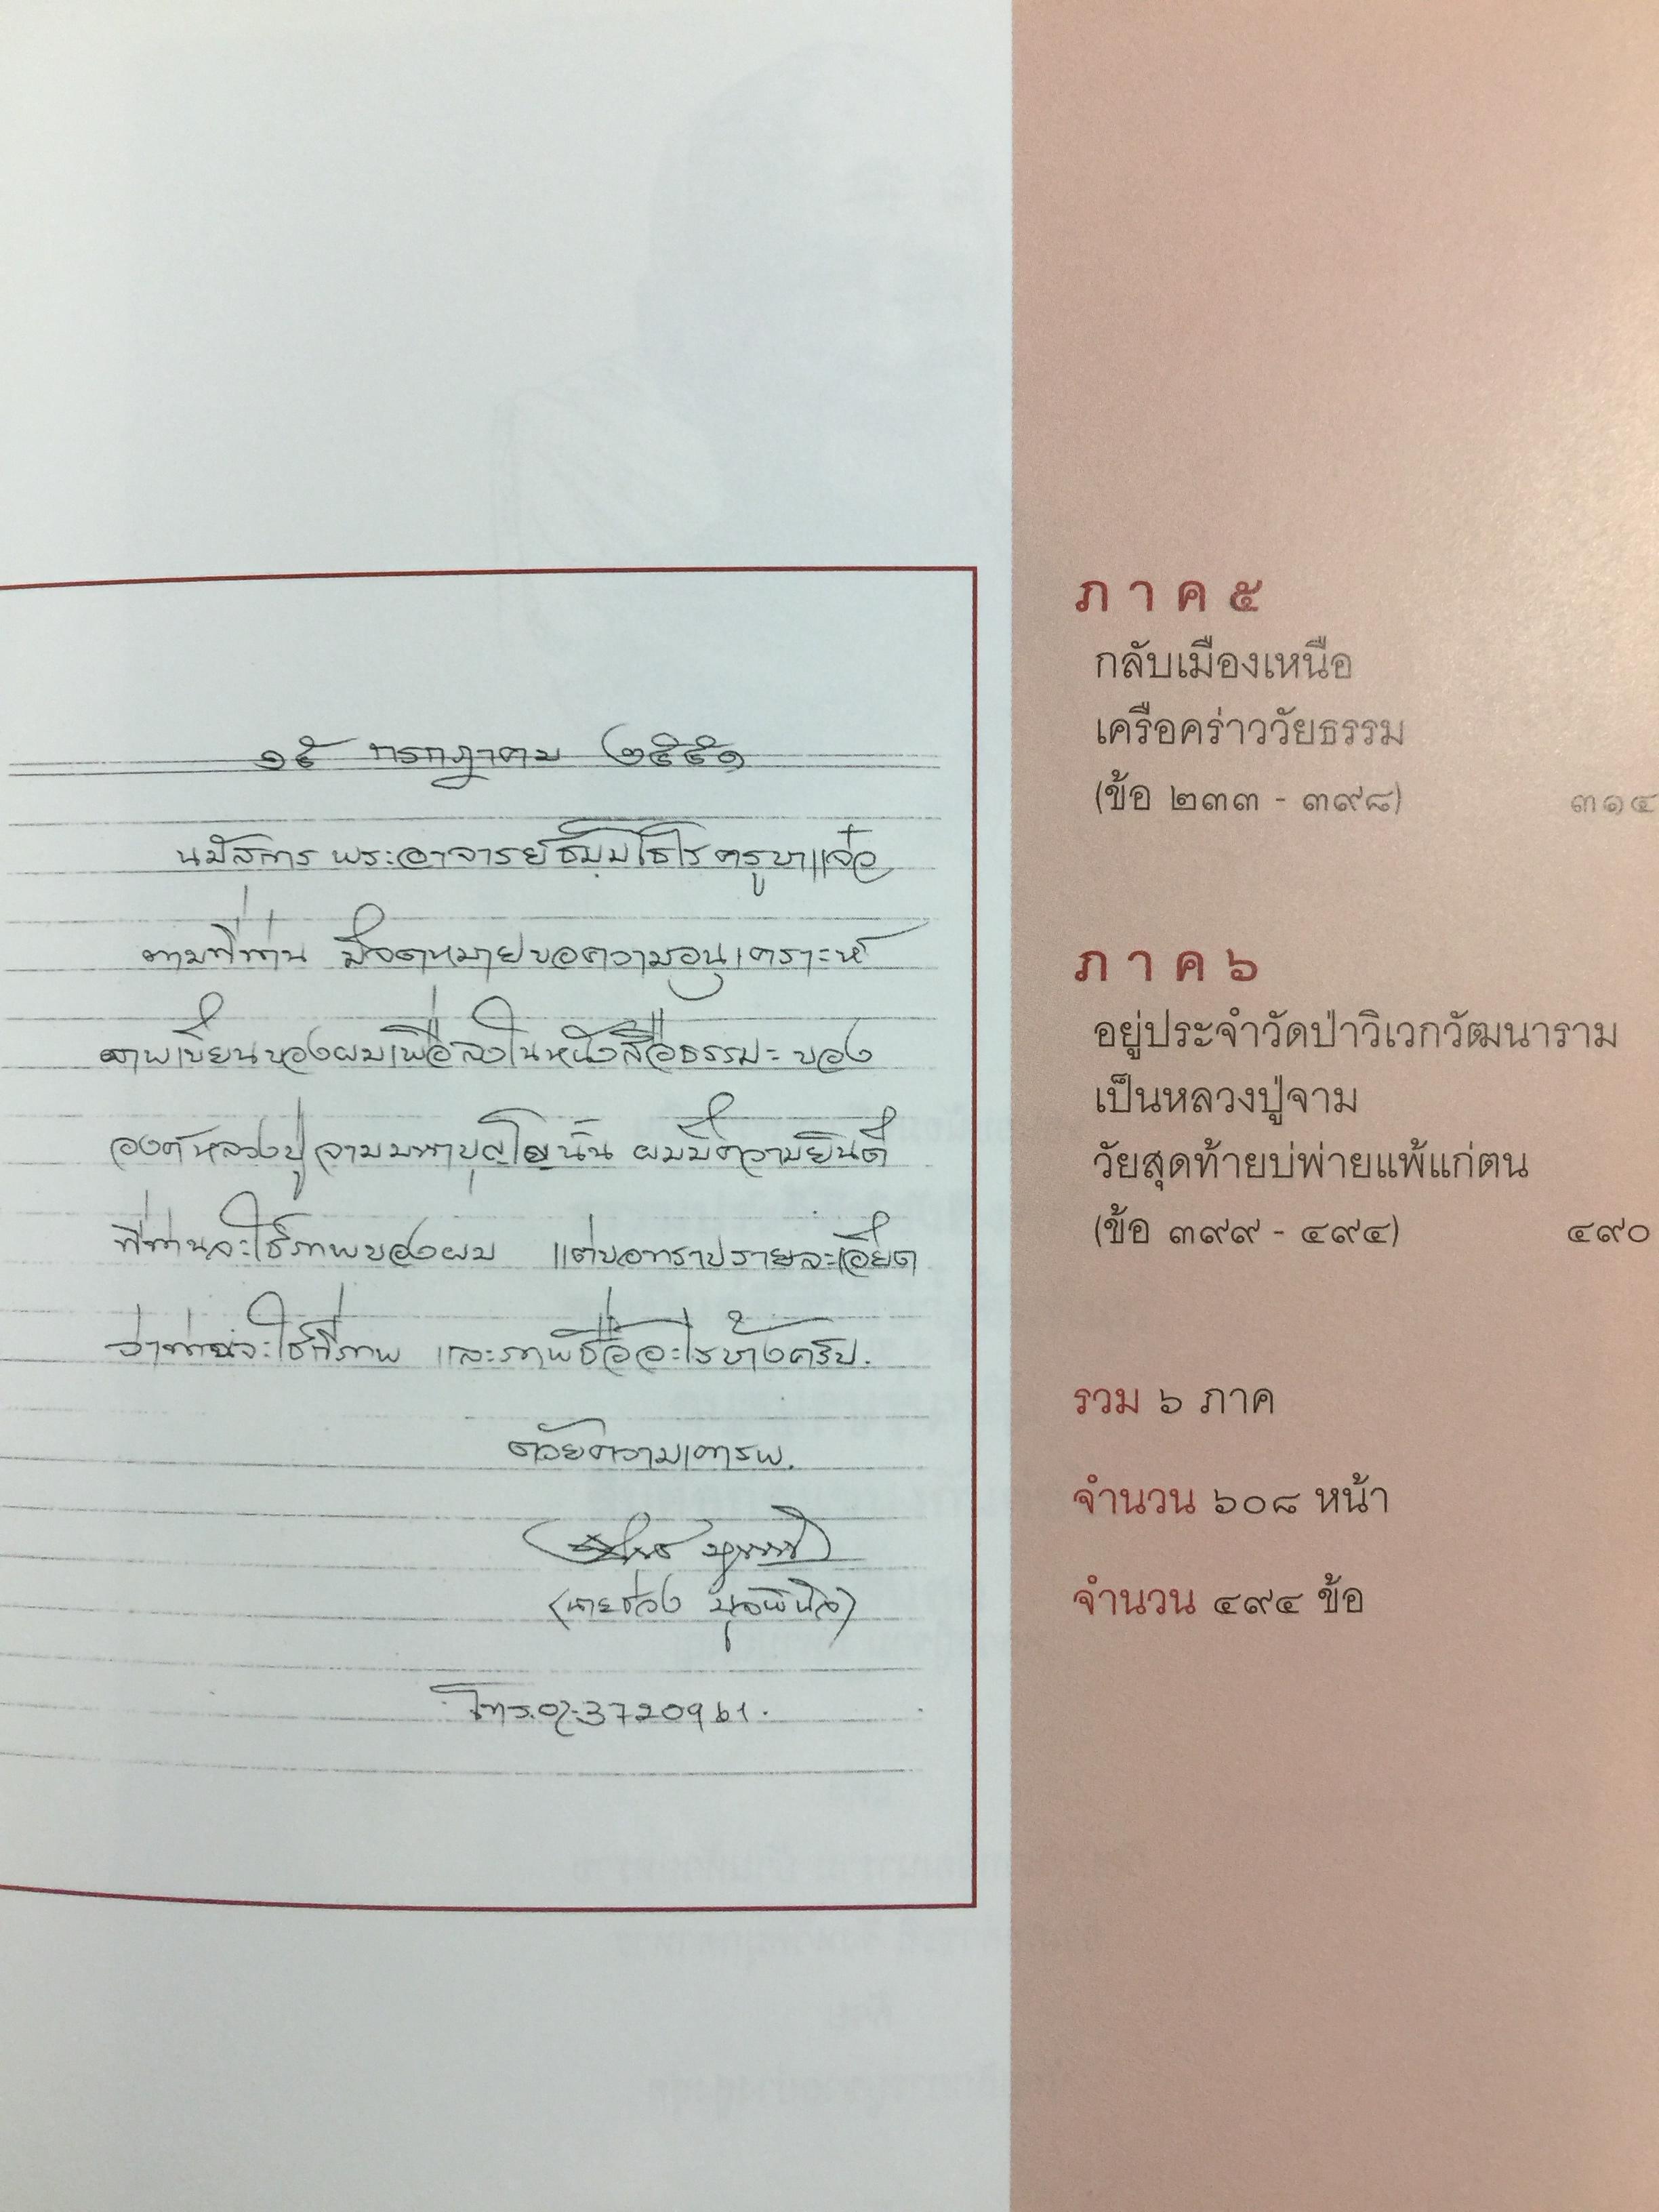 ๑๕ กรกฎาคม ๒๕๕๑
นมัสการ พระอาจารย์ธมฺมโธโร ครูบาแจ๋อ
ตามที่ท่าน มีจดหมายขอความอนุเคราะห์
ภาพเขียนของผมเพื่อลงในหนังสือธรรมะ ของ
องค์หลวงปู่จามมหาปุญโญนั้น ผมมีความยินดี
ที่ท่านจะใช้ภาพของผม แต่ขอทราบรายละเอียด
ว่าท่านจะใช้กี่ภาพ และภาพชื่ออะไรบ้างครับ.
ด้วยความเคารพ.
(นายช่วง มูลพินิจ)
โทร.02-3720961.
ภาค๕
กลับเมืองเหนือ
เครือคร่าววัยธรรม
(ข้อ ๒๓๓ - ๓๙๘) ๓๑๔
ภาค๖
อยู่ประจำวัดป่าวิเวกวัฒนาราม
เป็นหลวงปู่จาม
วัยสุดท้ายบ่พ่ายแพ้แก่ตน
(ข้อ ๓๙๙ - ๔๙๔) ๔๙๐
รวม ๖ ภาค
จำนวน ๖๐๘ หน้า
จำนวน ๔๙๔ ข้อ